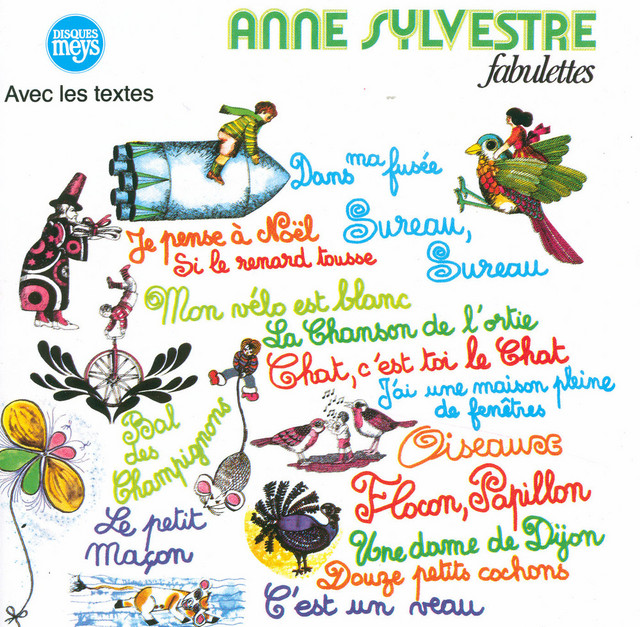 DISQUES
meys
ANNE SYLVESTRE
fabulettes
Avec les textes
Dans ma fusée
Je pense à Noël
Si le renard tousse
Sureau,
Sureau
Mon vélo est blanc
La Chanson de l'ortie
Chat, c'est toi le Chat
J'ai une maison pleine
de fenêtres
Bal
des
Champignons
Oiseaux
Flocon, Papillon
Le petit
Maçon
Une dame de Dijon
Douze petits cochons
C'est un veau